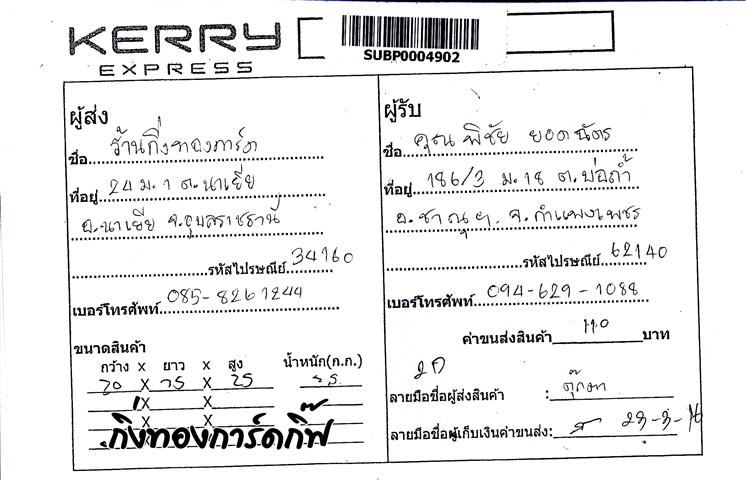 KERRY
EXPRESS
SUBP0004902
ผู้ส่ง
ชื่อ ร้านกิ่งทองการ์ด
ที่อยู่ 24 ม.1 ต.นาเยีย
อ.นาเยีย จ.อุบลราชธานี
รหัสไปรษณีย์ 34160
เบอร์โทรศัพท์ 085-8261244
ขนาดสินค้า
กว้าง x ยาว x สูง น้ำหนัก(ก.ก.)
X X 25
X X
X X
กิ่งทองการ์ดกิ๊ฟ
ผู้รับ
ชื่อ คุณ พิชัย ยอดฉัตร
ที่อยู่ 186/3 ม.18 ต.บ่อถ้ำ
อ.ขาณุฯ จ.กำแพงเพชร
รหัสไปรษณีย์ 62140
เบอร์โทรศัพท์ 094-629-1088
ค่าขนส่งสินค้า 110 บาท
ลายมือชื่อผู้ส่งสินค้า : ตุ๊กตา
ลายมือชื่อผู้เก็บเงินค่าขนส่ง: